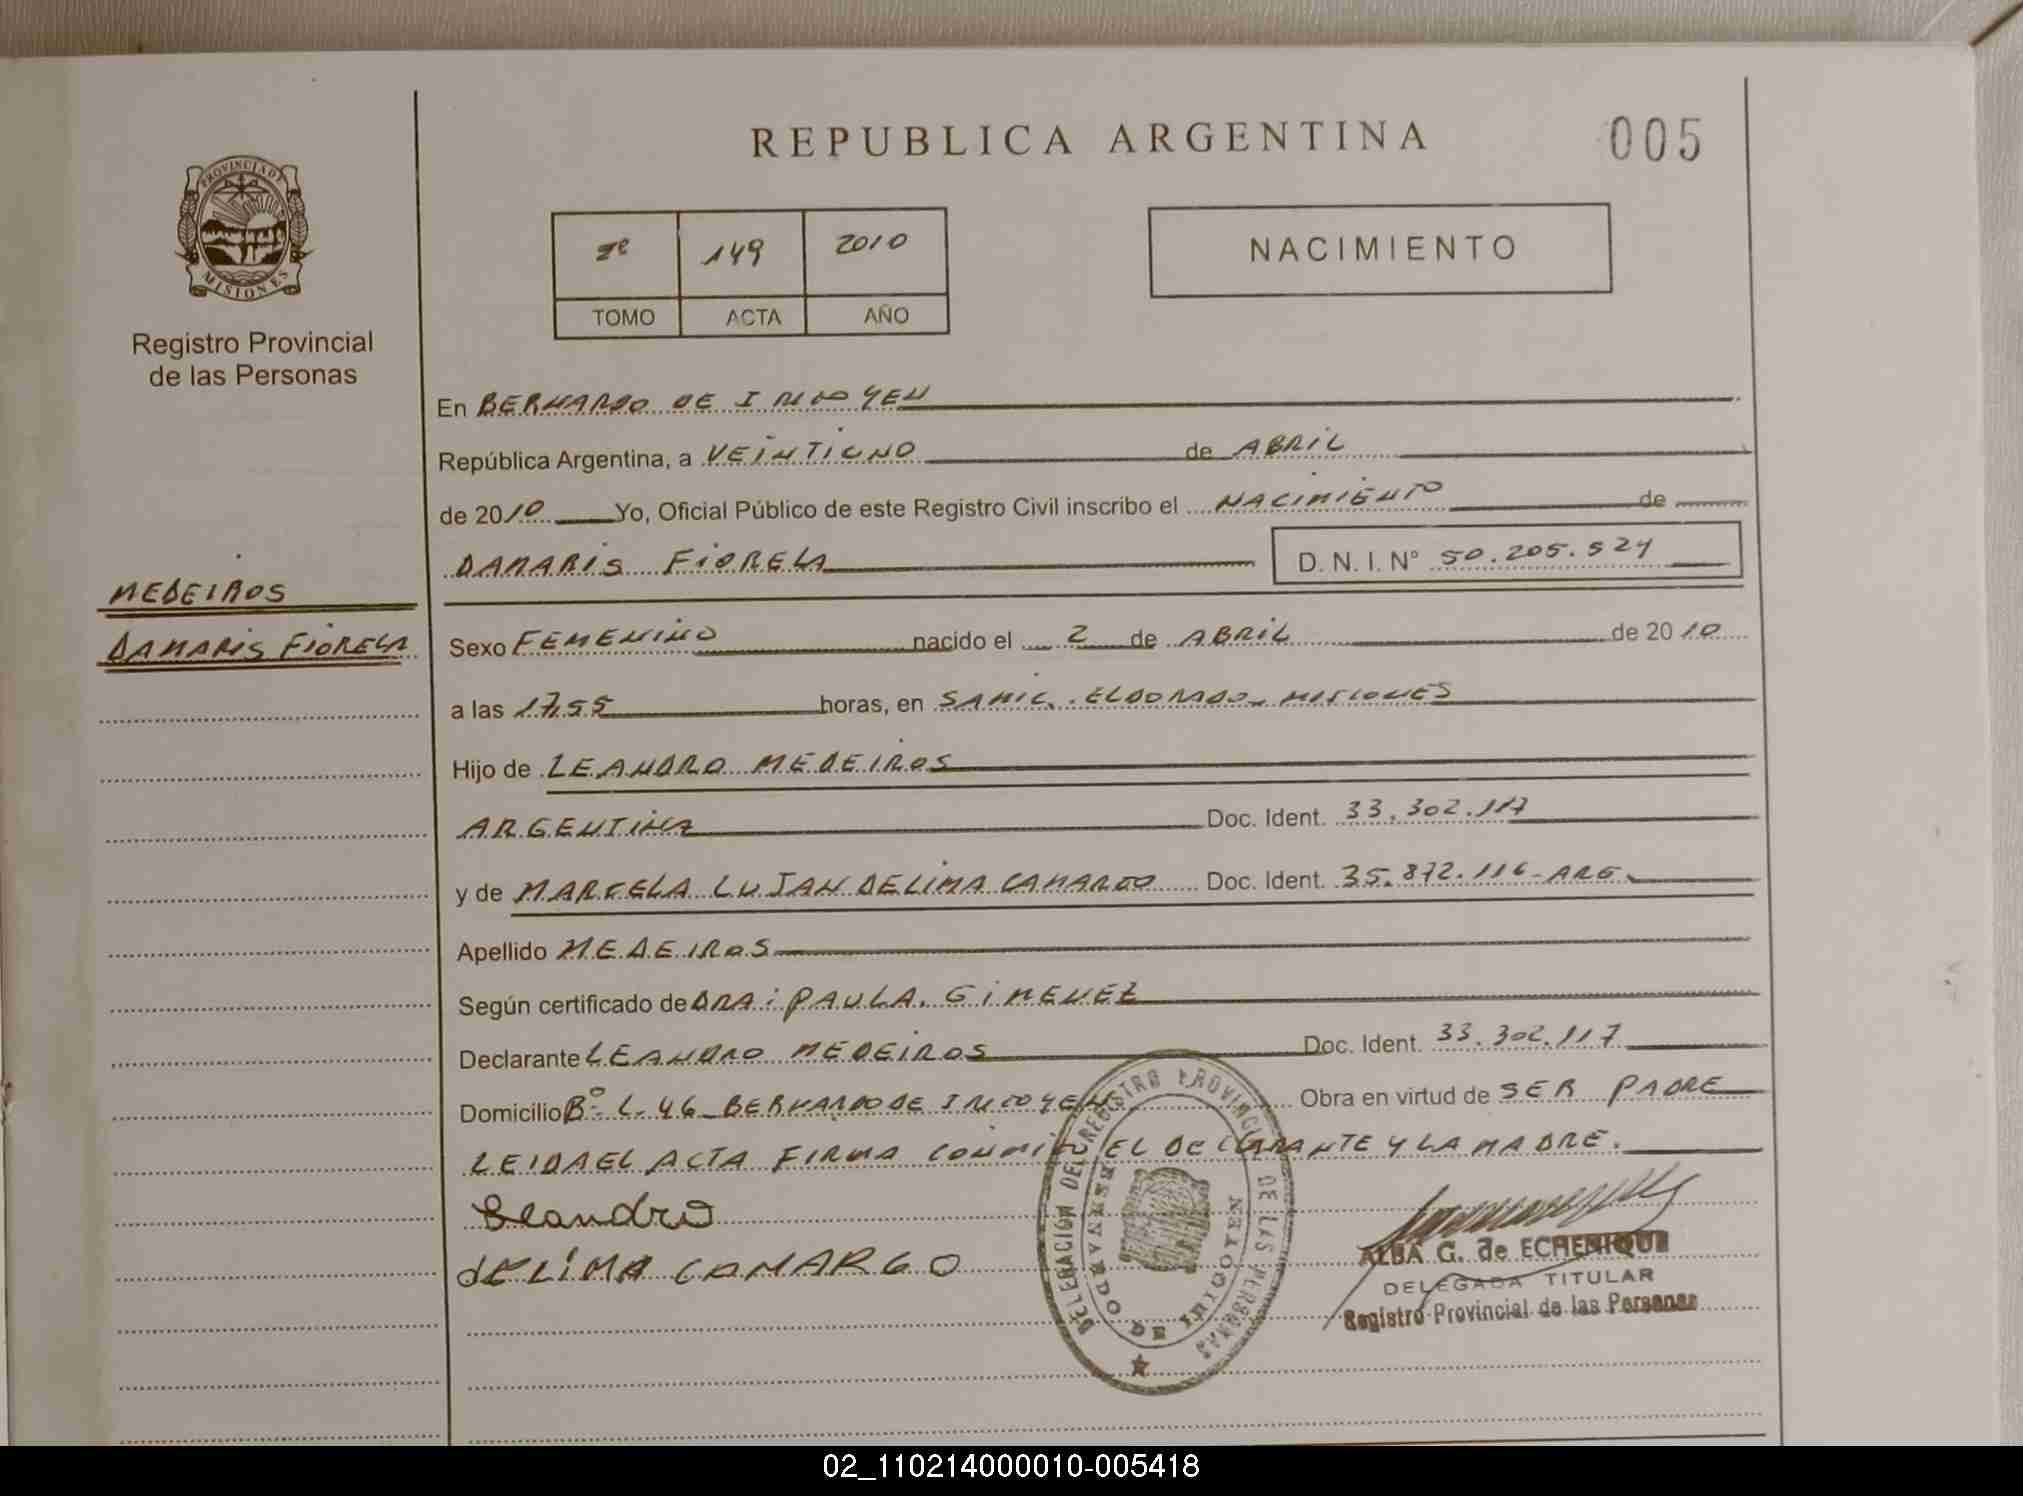 REPUBLICA ARGENTINA
005
PROVINCIA DE
MISIONES
Registro Provincial
de las Personas
2º 149 2010
TOMO ACTA AÑO
NACIMIENTO
En BERNARDO DE IRIGOYEN
República Argentina, a VEINTIUNO de ABRIL
de 2010 Yo, Oficial Público de este Registro Civil inscribo el NACIMIENTO de
DAMARIS FIORELA D. N. I. Nº 50.205.524
MEDEIROS
DAMARIS FIORELA
Sexo FEMENINO nacido el 2 de ABRIL de 2010
a las 17,55 horas, en SAMIC. ELDORADO - MISIONES
Hijo de LEANDRO MEDEIROS
ARGENTINA Doc. Ident. 33.302.117
y de MARCELA LUJAN DELIMA CAMARGO Doc. Ident. 35.872.116 - ARG.
Apellido MEDEIROS
Según certificado de DRA: PAULA. GIMENEZ
Declarante LEANDRO MEDEIROS Doc. Ident. 33.302.117
Domicilio Bº L. 46 - BERNARDO DE IRIGOYEN Obra en virtud de SER PADRE
LEIDA EL ACTA FIRMA CONMIGO EL DECLARANTE Y LA MADRE.
Leandro
dELIMA CAMARGO
DELEGACIÓN DEL REGISTRO PROVINCIAL DE LAS PERSONAS
BERNARDO DE IRIGOYEN
ALBA G. de ECHENIQUE
DELEGADA TITULAR
Registro Provincial de las Personas
02_110214000010-005418